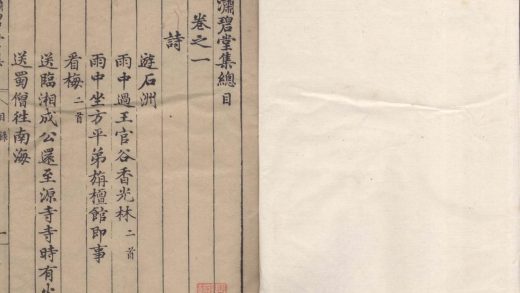 瀟碧堂集總目
卷之一
詩
遊石洲
雨中過王官谷香光林二首
雨中坐方平弟旃檀館即事
看梅二首
送臨湘成公還至源寺寺時有
送蜀僧徃南海
目錄
一